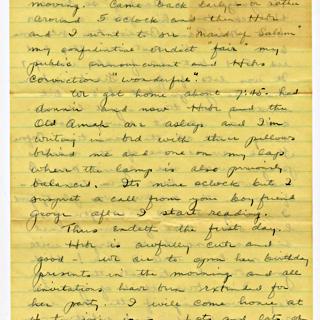 morning. Came back early - or rather
around 5 oclock and then Hebe
and I went to see "Maid of Salem"
my confidential verdict "fair" my
public announcement and Hebs
Conviction "wonderful"
We got home about 7:45. had
dinner and now Hebe and the
Old Amah are asleep and I'm
writing in bed with three pillows
behind me and one on my lap
where the lamp is also precariously
balanced. Its nine oclock but I
suspect a call from your boy friend
George after I start reading.
Thus endeth the first day.
Hebe is awfully cute and
good - we are to open her birthday
presents in the morning and all
invitations have been extended for
her party. I will come home at